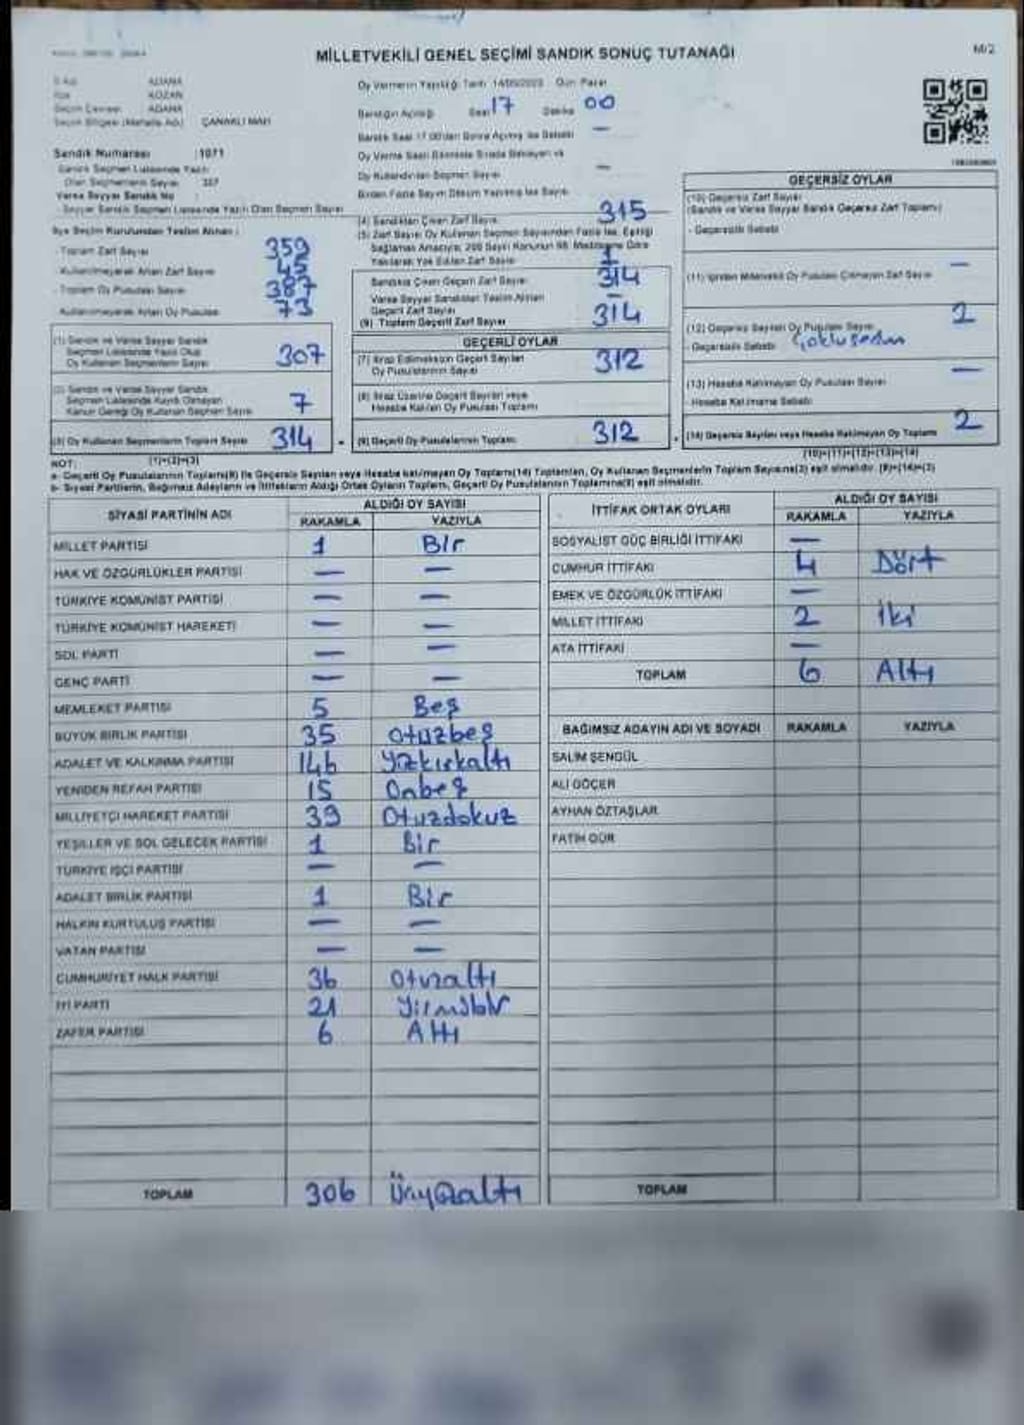 MİLLETVEKİLİ GENEL SEÇİMİ SANDIK SONUÇ TUTANAĞI
M/2
İl Adı ADANA
İlçe KOZAN
Seçim Çevresi ADANA
Seçim Bölgesi (Mahalle Adı) ÇANAKLI MAH
Sandık Numarası 1071
Sandık Seçmen Listesinde Yazılı
Olan Seçmenlerin Sayısı
Varsa Seyyar Sandık No
- Seyyar Sandık Seçmen Listesinde Yazılı Olan Seçmen Sayısı
İlçe Seçim Kurulundan Teslim Alınan
- Toplam Zarf Sayısı 359
- Kullanılmayarak Artan Zarf Sayısı 45
- Toplam Oy Pusulası Sayısı 387
- Kullanılmayarak Artan Oy Pusulası 73
(1) Sandık ve Varsa Seyyar Sandık
Seçmen Listesinde Yazılı Olup
Oy Kullanan Seçmenlerin Sayısı 307
(2) Sandık ve Varsa Seyyar Sandık
Seçmen Listesinde Kaydı Olmayan
Kanun Gereği Oy Kullanan Seçmen Sayısı 7
(3) Oy Kullanan Seçmenlerin Toplam Sayısı 314
(1)+(2)=(3)
Oy Vermenin Yapıldığı Tarih 14/05/2023 Gün Pazar
Sandığın Açılışı Saat 17 Dakika 00
Sandık Saat 17.00'dan Sonra Açılmış İse Sebebi —
Oy Verme Saati Bitiminde Sırada Bekleyen ve
Oy Kullandırılan Seçmen Sayısı —
Birden Fazla Sayım Döküm Yapılmış İse Sayısı
(4) Sandıktan Çıkan Zarf Sayısı 315
(5) Zarf Sayısı Oy Kullanan Seçmen Sayısından Fazla İse, Eşitliği
Sağlamak Amacıyla; 298 Sayılı Kanunun 98. Maddesine Göre
Yakılarak Yok Edilen Zarf Sayısı 1
Sandıktan Çıkan Geçerli Zarf Sayısı 314
Varsa Seyyar Sandıktan Teslim Alınan
Geçerli Zarf Sayısı —
(6) Toplam Geçerli Zarf Sayısı 314
GEÇERLİ OYLAR
(7) İtiraz Edilmeksizin Geçerli Sayılan
Oy Pusulalarının Sayısı 312
(8) İtiraz Üzerine Geçerli Sayılan veya
Hesaba Katılan Oy Pusulası Toplamı
(9) Geçerli Oy Pusulalarının Toplamı 312
GEÇERSİZ OYLAR
(10) Geçersiz Zarf Sayısı
(Sandık ve Varsa Seyyar Sandık Geçersiz Zarf Toplamı)
- Geçersizlik Sebebi
(11) İçinden Milletvekili Oy Pusulası Çıkmayan Zarf Sayısı —
(12) Geçersiz Sayılan Oy Pusulası Sayısı 2
- Geçersizlik Sebebi
(13) Hesaba Katılmayan Oy Pusulası Sayısı —
- Hesaba Katılmama Sebebi
(14) Geçersiz Sayılan veya Hesaba Katılmayan Oy Toplamı 2
(10)+(11)+(12)+(13)=(14)
NOT:
a- Geçerli Oy Pusulalarının Toplamı(9) ile Geçersiz Sayılan veya Hesaba katılmayan Oy Toplamı(14) Toplamları, Oy Kullanan Seçmenlerin Toplam Sayısına(3) eşit olmalıdır. (9)+(14)=(3)
b- Siyasi Partilerin, Bağımsız Adayların ve İttifakların Aldığı Ortak Oyların Toplamı, Geçerli Oy Pusulalarının Toplamına(9) eşit olmalıdır.
SİYASİ PARTİNİN ADI ALDIĞI OY SAYISI
RAKAMLA YAZIYLA
MİLLET PARTİSİ 1 Bir
HAK VE ÖZGÜRLÜKLER PARTİSİ — —
TÜRKİYE KOMÜNİST PARTİSİ — —
TÜRKİYE KOMÜNİST HAREKETİ — —
SOL PARTİ — —
GENÇ PARTİ — —
MEMLEKET PARTİSİ 5 Beş
BÜYÜK BİRLİK PARTİSİ 35 Otuzbeş
ADALET VE KALKINMA PARTİSİ 146 Yüzkırkaltı
YENİDEN REFAH PARTİSİ 15 Onbeş
MİLLİYETÇİ HAREKET PARTİSİ 39 Otuzdokuz
YEŞİLLER VE SOL GELECEK PARTİSİ 1 Bir
TÜRKİYE İŞÇİ PARTİSİ — —
ADALET BİRLİK PARTİSİ 1 Bir
HALKIN KURTULUŞ PARTİSİ — —
VATAN PARTİSİ — —
CUMHURİYET HALK PARTİSİ 36 Otuzaltı
İYİ PARTİ 21 Yirmibir
ZAFER PARTİSİ 6 Altı
TOPLAM 306 Üçyüzaltı
İTTİFAK ORTAK OYLARI ALDIĞI OY SAYISI
RAKAMLA YAZIYLA
SOSYALİST GÜÇ BİRLİĞİ İTTİFAKI —
CUMHUR İTTİFAKI 4 Dört
EMEK VE ÖZGÜRLÜK İTTİFAKI —
MİLLET İTTİFAKI 2 İki
ATA İTTİFAKI —
TOPLAM 6 Altı
BAĞIMSIZ ADAYIN ADI VE SOYADI RAKAMLA YAZIYLA
SALİM ŞENGÜL
ALİ GÖÇER
AYHAN ÖZTAŞLAR
FATİH GÜR
TOPLAM